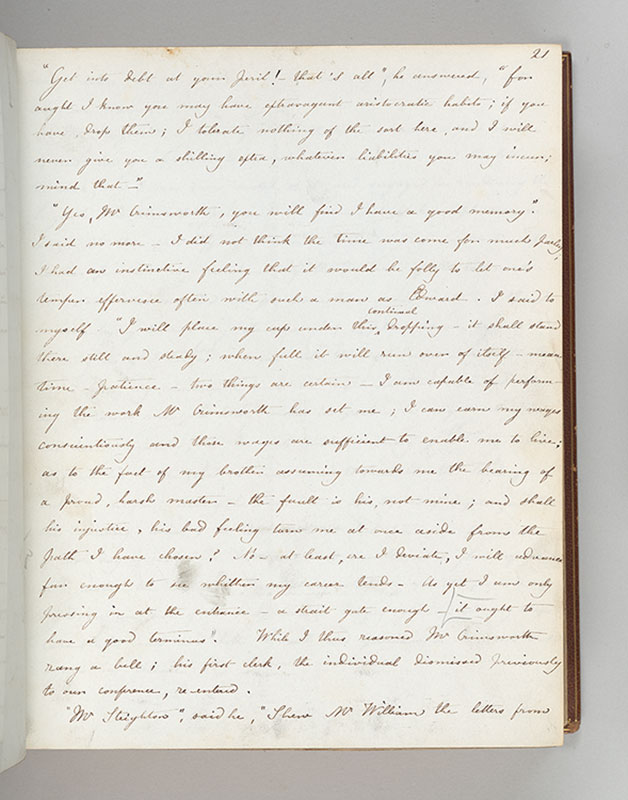 21
"Get into debt at your peril! - that's all", he answered, "for
aught I know you may have extravagant aristocratic habits; if you
have, drop them; I tolerate nothing of the sort here, and I will
never give you a shilling extra, whatever liabilities you may incur;
mind that -"
"Yes, Mr Crimsworth, you will find I have a good memory".
I said no more - I did not think the time was come for much parley,
I had an instinctive feeling that it would be folly to let one's
temper effervesce often with such a man as Edward. I said to
continual
myself "I will place my cup under this dropping - it shall stand
there still and steady; when full it will run over of itself - mean
time - patience - two things are certain - I am capable of perform-
ing the work Mr Crimsworth has set me; I can earn my wages
conscientiously and those wages are sufficient to enable me to live;
as to the fact of my brother assuming towards me the bearing of
a proud, harsh master - the fault is his, not mine; and shall
his injustice, his bad feeling turn me at once aside from the
path I have chosen? No - at least, ere I deviate, I will advance
far enough to see whither my career tends - As yet I am only
pressing in at the entrance - a strait gate enough - it ought to
have a good terminus". While I thus reasoned Mr Crimsworth
rang a bell; his first clerk, the individual dismissed previously
to our conference, re-entered.
"Mr Steighton", said he, "Shew Mr William the letters from